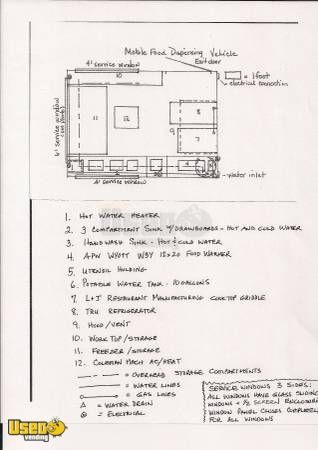 Mobile Food Dispensing Vehicle
4' service window
Exit door
= 1 foot
electrical connection
10
6' service window
11
12
8
9
7
4
6' service window
water inlet
1. HOT WATER HEATER
2. 3 COMPARTMENT SINK W/ DRAINBOARDS - HOT AND COLD WATER
3. HANDWASH SINK - HOT & COLD WATER
4. APW WYOTT W3V 12x20 FOOD WARMER
5. UTENSIL HOLDING
6. POTABLE WATER TANK - 10 GALLONS
7. L+J RESTAURANT MANUFACTURING COOKTOP GRIDDLE
8. TRU REFRIGERATOR
9. HOOD/VENT
10. WORK TOP/STORAGE
11. FREEZER/STORAGE
12. COLEMAN MACH AC/HEAT
= OVERHEAD STORAGE COMPARTMENTS
= WATER LINES
= GAS LINES
= WATER DRAIN
= ELECTRICAL
SERVICE WINDOWS 3 SIDES:
ALL WINDOWS HAVE GLASS SLIDING
WINDOWS + 1/2 SCREEN ENCLOSURE
WINDOW PANEL CLOSES
FOR ALL WINDOWS
Used
vending